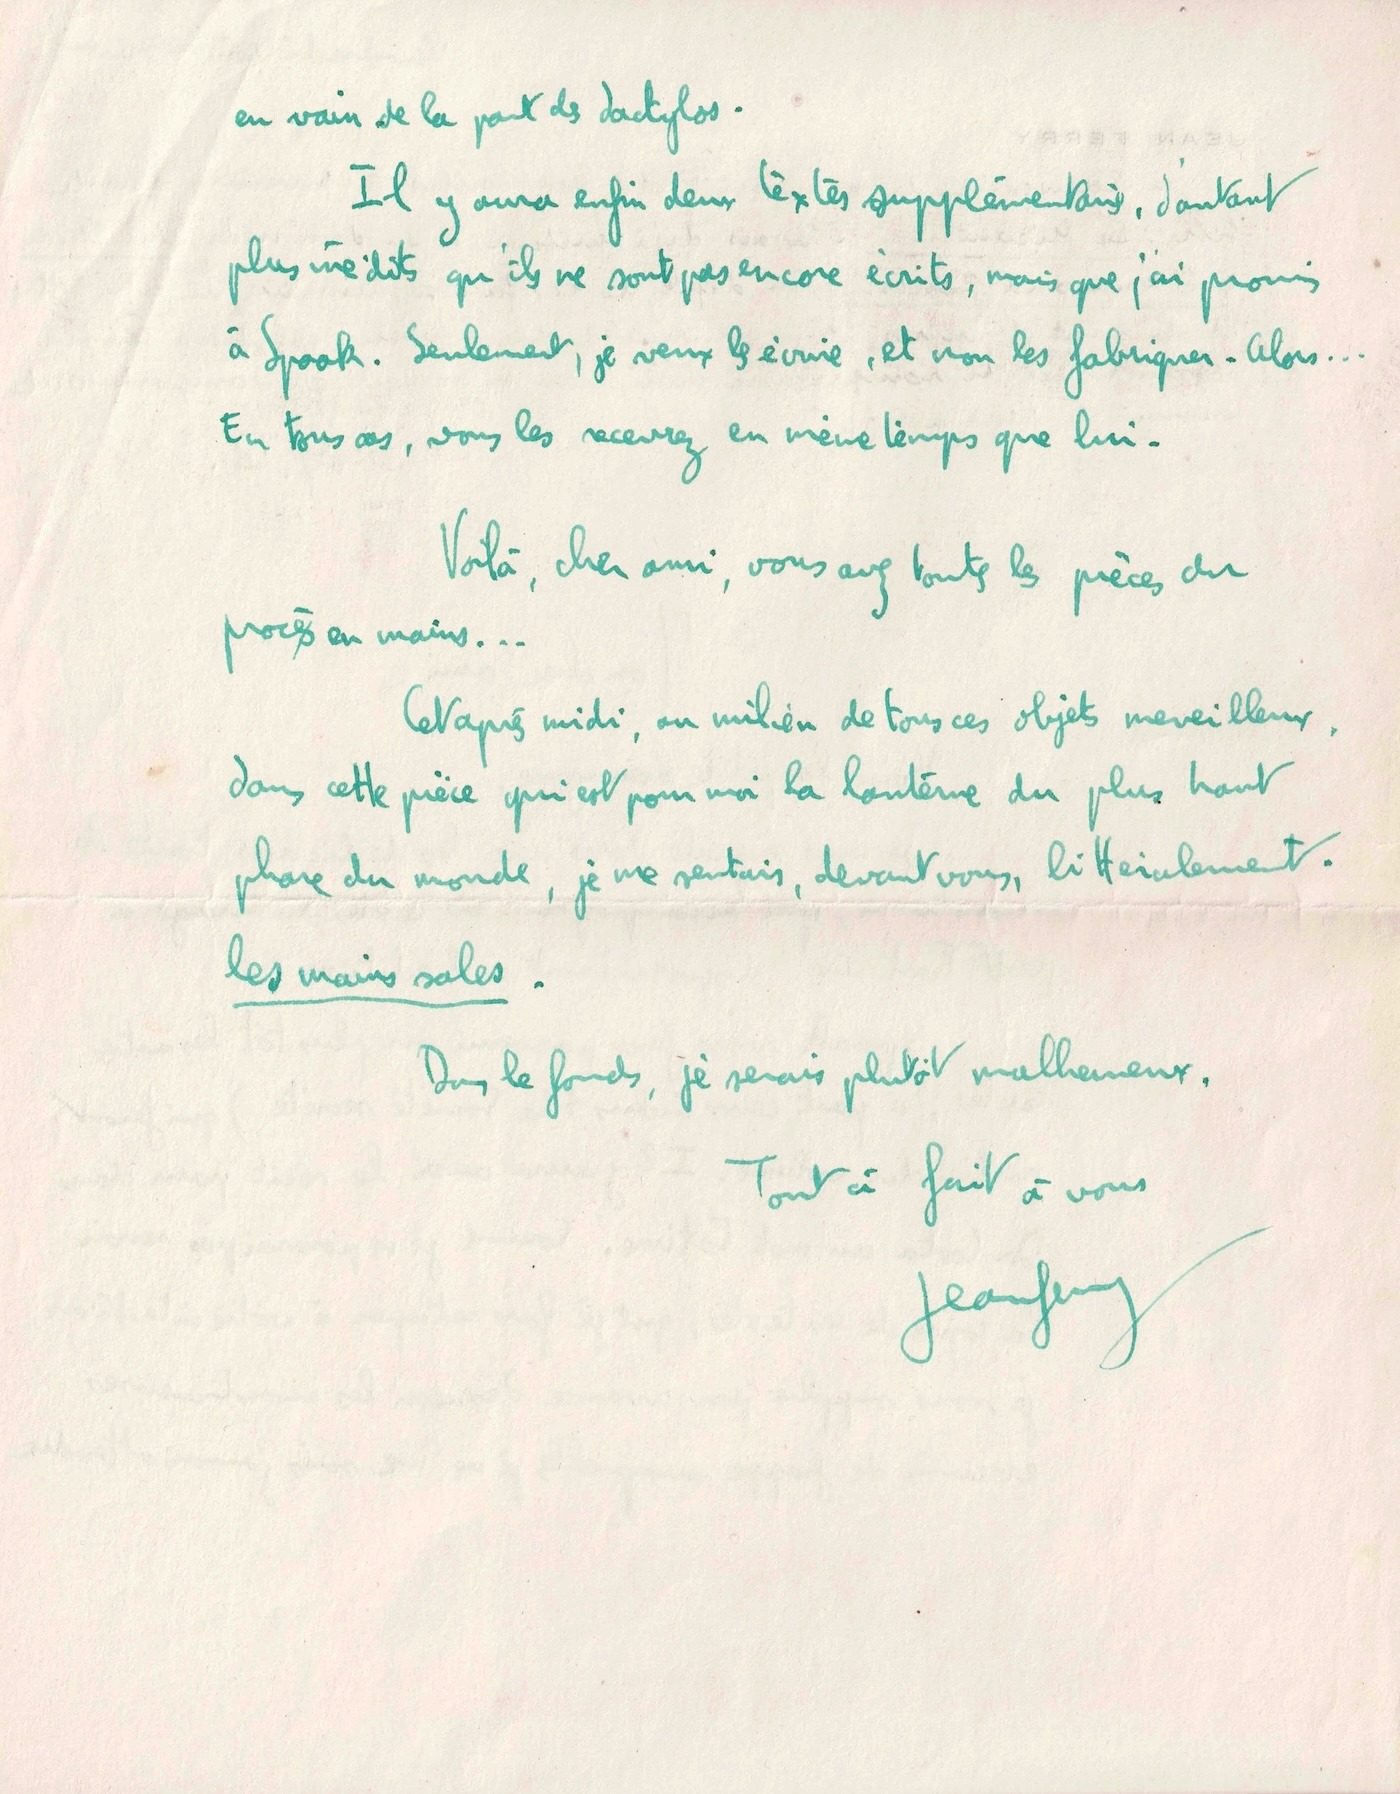 en vain de la part des dactylos.
Il y aura enfin deux textes supplémentaires, d'autant
plus inédits qu'ils ne sont pas encore écrits, mais que j'ai promis
à Spaak. Seulement, je veux les écrire, et non les fabriquer. Alors...
En tous cas, vous les recevrez en même temps que lui.
Voilà, cher ami, vous avez toutes les pièces du
procès en mains...
Cet après midi, au milieu de tous ces objets merveilleux,
dans cette pièce qui est pour moi la lanterne du plus haut
phare du monde, je me sentais, devant vous, littéralement.
les mains sales.
Dans le fonds, je serais plutôt malheureux.
Tout à fait à vous
Jean Ferry